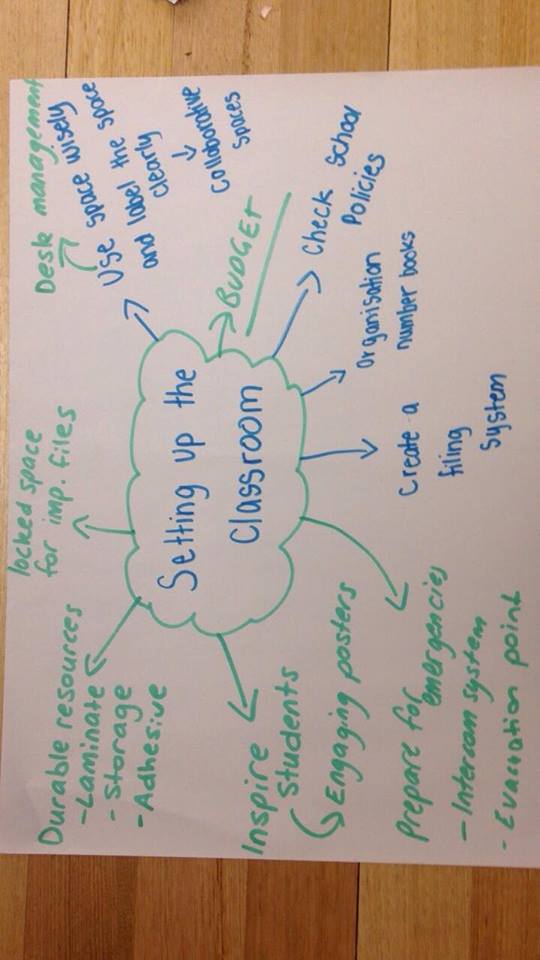 Setting up the
Classroom
Durable resources
-Laminate
- Storage
- Adhesive
locked space
for imp. files
Desk management
Use space wisely
and label the space
clearly
Collaborative
spaces
BUDGET
Check School
Policies
Organisation
number books
Create a
filing
System
Prepare for
emergencies
- Intercom system
- Evacuation point
Inspire
Students
Engaging posters